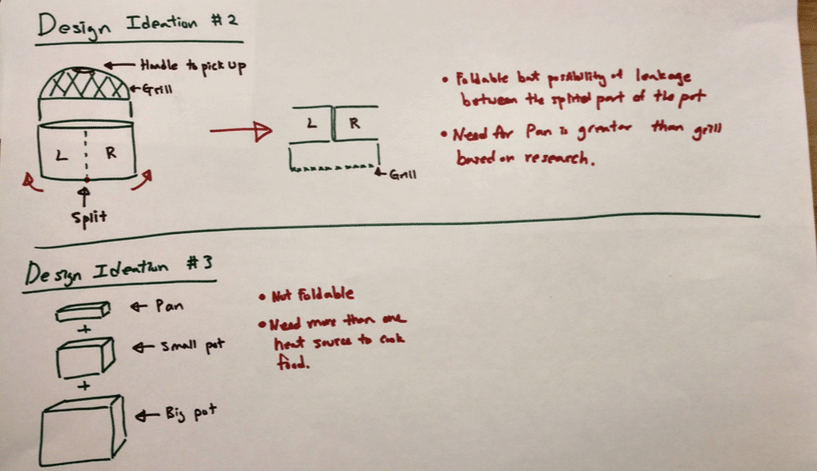 Design Ideation #2
Handle to pick up
Grill
L R
Split
L R
Grill
• Foldable but possibility of leakage
between the splited part of the pot
• Need for Pan is greater than grill
based on research.
Design Ideation #3
Pan
+
Small pot
+
Big pot
• Not Foldable
• Need more than one
heat source to cook
food.